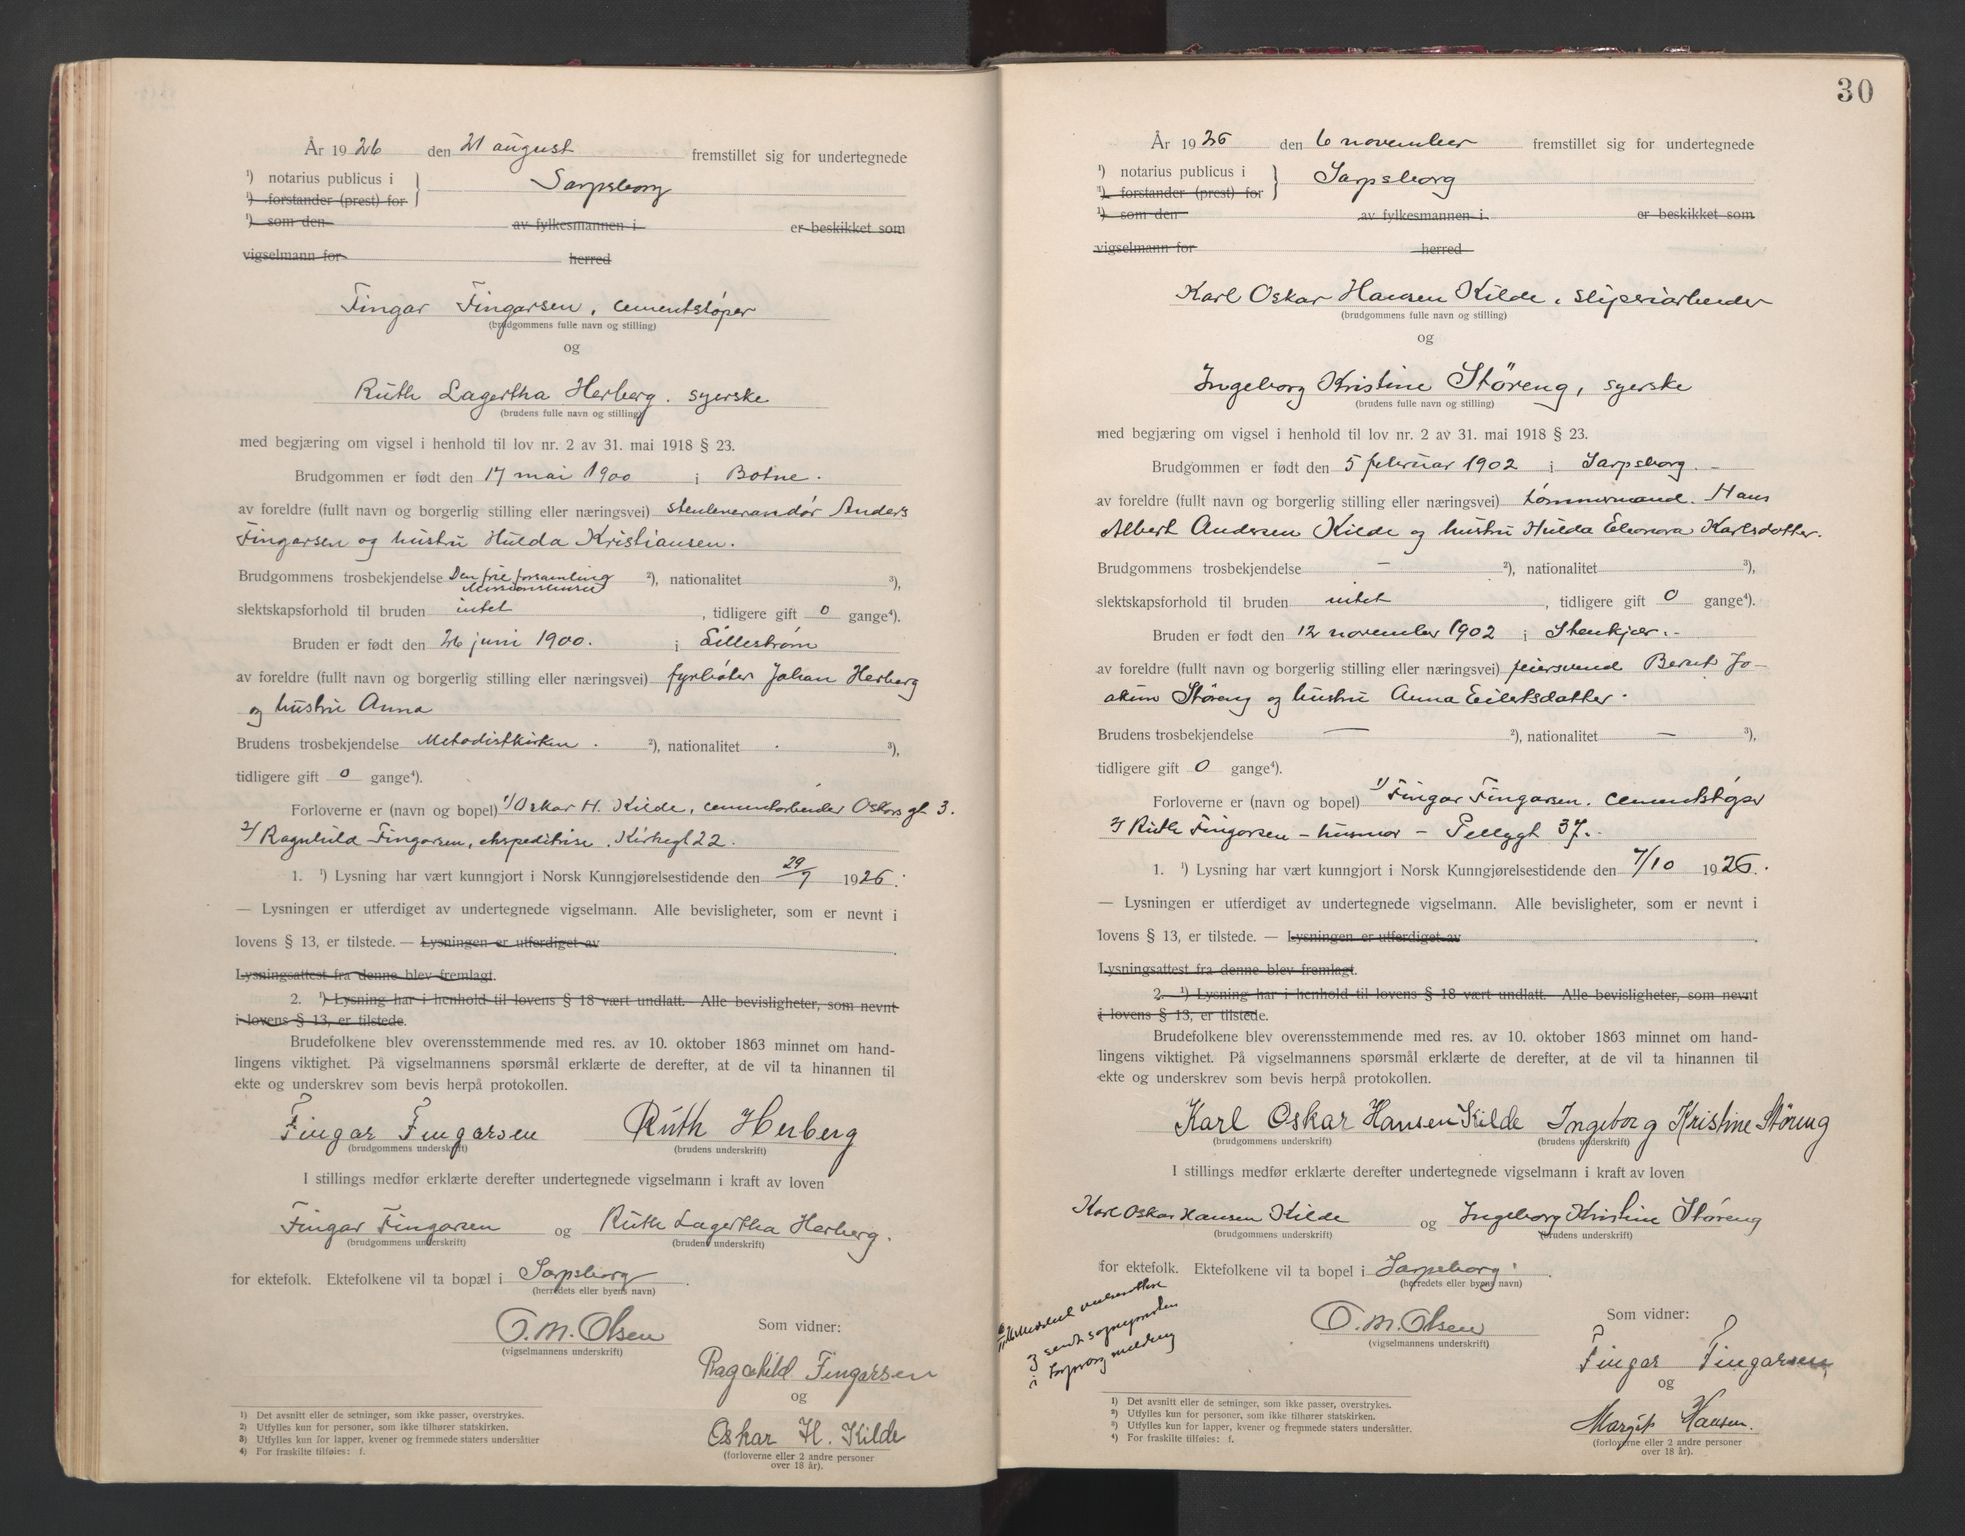 År 1926 den 21 august fremstillet sig for undertegnede
¹) notarius publicus i } Sarpsborg
¹) forstander (prest) for
¹) som den av fylkesmannen i er beskikket som
vigselmann for herred
Fingar Fingarsen, cementstøper
(brudgommens fulle navn og stilling)
og
Ruth Lagertha Herberg. syerske
(brudens fulle navn og stilling)
med begjæring om vigsel i henhold til lov nr. 2 av 31. mai 1918 § 23.
Brudgommen er født den 17 mai 1900 i Botne.
av foreldre (fullt navn og borgerlig stilling eller næringsvei) stenleverandør Anders
Fingarsen og hustru Hulda Kristiansen.
Brudgommens trosbekjendelse Den frie forsamling ²), nationalitet ³),
Missionshuset
slektskapsforhold til bruden intet, tidligere gift 0 gange⁴).
Bruden er født den 26 juni 1900. i Lillestrøm
av foreldre (fullt navn og borgerlig stilling eller næringsvei) fyrbøter Johan Herberg
og hustru Anna
Brudens trosbekjendelse Metodistkirken. ²), nationalitet ³),
tidligere gift 0 gange⁴).
Forloverne er (navn og bopel) 1/ Oskar H. Kilde, cementarbeider Oskars gt 3.
2/ Ragnhild Fingarsen, ekspeditrise, Kirkegt 22.
1. ¹) Lysning har vært kunngjort i Norsk Kunngjørelsestidende den 29/7 1926.
— Lysningen er utferdiget av undertegnede vigselmann. Alle bevisligheter, som er nevnt i
lovens § 13, er tilstede. — Lysningen er utferdiget av
Lysningsattest fra denne blev fremlagt.
2. ¹) Lysning har i henhold til lovens § 18 vært undlatt. Alle bevisligheter, som nevnt
i lovens § 13, er tilstede.
Brudefolkene blev overensstemmende med res. av 10. oktober 1863 minnet om hand-
lingens viktighet. På vigselmannens spørsmål erklærte de derefter, at de vil ta hinannen til
ekte og underskrev som bevis herpå protokollen.
Fingar Fingarsen Ruth Herberg
(brudgommens underskrift) (brudens underskrift)
I stillings medfør erklærte derefter undertegnede vigselmann i kraft av loven
Fingar Fingarsen og Ruth Lagertha Herberg.
(brudgommens underskrift) (brudens underskrift)
for ektefolk. Ektefolkene vil ta bopæl i Sarpsborg.
(herredets eller byens navn)
O. M. Olsen Som vidner:
(vigselmannens underskrift)
Ragnhild Fingarsen
og
Oskar H. Kilde
(forloverne eller 2 andre personer
over 18 år).
1) Det avsnitt eller de setninger, som ikke passer, overstrykes.
2) Utfylles kun for personer, som ikke tilhører statskirken.
3) Utfylles kun for lapper, kvener og fremmede staters undersåtter
4) For fraskilte tilføies: f.
30
År 1926 den 6 november fremstillet sig for undertegnede
¹) notarius publicus i } Sarpsborg
¹) forstander (prest) for
¹) som den av fylkesmannen i er beskikket som
vigselmann for herred
Karl Oskar Hansen Kilde, sliperiarbeider
(brudgommens fulle navn og stilling)
og
Ingeborg Kristine Støreng, syerske
(brudens fulle navn og stilling)
med begjæring om vigsel i henhold til lov nr. 2 av 31. mai 1918 § 23.
Brudgommen er født den 5 februar 1902 i Sarpsborg. –
av foreldre (fullt navn og borgerlig stilling eller næringsvei) tømmermand. Hans
Albert Andersen Kilde og hustru Hulda Eleonora Karlsdatter.
Brudgommens trosbekjendelse — ²), nationalitet ³),
slektskapsforhold til bruden intet, tidligere gift 0 gange⁴).
Bruden er født den 12 november 1902 i Stenkjær. –
av foreldre (fullt navn og borgerlig stilling eller næringsvei) feiersvend Bernt Jo-
akim Støreng og hustru Anna Eilertsdatter.
Brudens trosbekjendelse — ²), nationalitet — ³),
tidligere gift 0 gange⁴).
Forloverne er (navn og bopel) 1/ Fingar Fingarsen. cementstøper
2/ Ruth Fingarsen – husmor – Pellygt 37.
1. ¹) Lysning har vært kunngjort i Norsk Kunngjørelsestidende den 7/10 1926.
— Lysningen er utferdiget av undertegnede vigselmann. Alle bevisligheter, som er nevnt i
lovens § 13, er tilstede. — Lysningen er utferdiget av
Lysningsattest fra denne blev fremlagt.
2. ¹) Lysning har i henhold til lovens § 18 vært undlatt. Alle bevisligheter, som nevnt
i lovens § 13, er tilstede.
Brudefolkene blev overensstemmende med res. av 10. oktober 1863 minnet om hand-
lingens viktighet. På vigselmannens spørsmål erklærte de derefter, at de vil ta hinannen til
ekte og underskrev som bevis herpå protokollen.
Karl Oskar Hansen Kilde Ingeborg Kristine Støreng
(brudgommens underskrift) (brudens underskrift)
I stillings medfør erklærte derefter undertegnede vigselmann i kraft av loven
Karl Oskar Hansen Kilde og Ingeborg Kristine Støreng
(brudgommens underskrift) (brudens underskrift)
for ektefolk. Ektefolkene vil ta bopel i Sarpsborg.
(herredets eller byens navn)
sendt sognepresten
i Sarpsborg melding
O. M. Olsen Som vidner:
(vigselmannens underskrift)
Fingar Fingarsen
og
Margit Hansen.
(forloverne eller 2 andre personer
over 18 år).
1) Det avsnitt eller de setninger, som ikke passer, overstrykes.
2) Utfylles kun for personer, som ikke tilhører statskirken.
3) Utfylles kun for lapper, kvener og fremmede staters undersåtter.
4) For fraskilte tilføies: f.